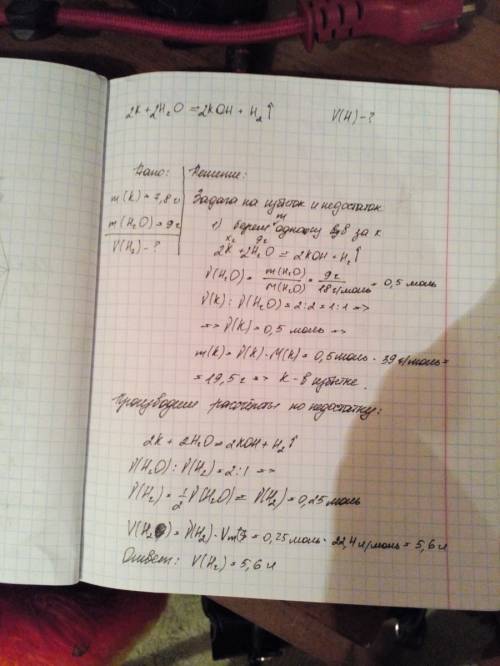 2K + 2H₂O = 2KOH + H₂↑ V(H) - ?
Дано:
m(K) = 7,8 г
m(H₂O) = 9 г
V(H₂) - ?
Решение:
Задача на избыток и недостаток
1) берем m одного в-в за x
x г 9 г
2K + 2H₂O = 2KOH + H₂↑
ν(H₂O) = m(H₂O)/M(H₂O) = 9 г/18 г/моль = 0,5 моль
ν(K) : ν(H₂O) = 2 : 2 = 1 : 1 =>
=> ν(K) = 0,5 моль =>
m(K) = ν(K) · M(K) = 0,5 моль · 39 г/моль =
= 19,5 г => K - в избытке.
Производим расчёты по недостатку:
2K + 2H₂O = 2KOH + H₂↑
ν(H₂O) : ν(H₂) = 2 : 1 =>
ν(H₂) = 1/2 ν(H₂O) = ν(H₂) = 0,25 моль
V(H₂) = ν(H₂) · Vm = 0,25 моль · 22,4 л/моль = 5,6 л
Ответ: V(H₂) = 5,6 л